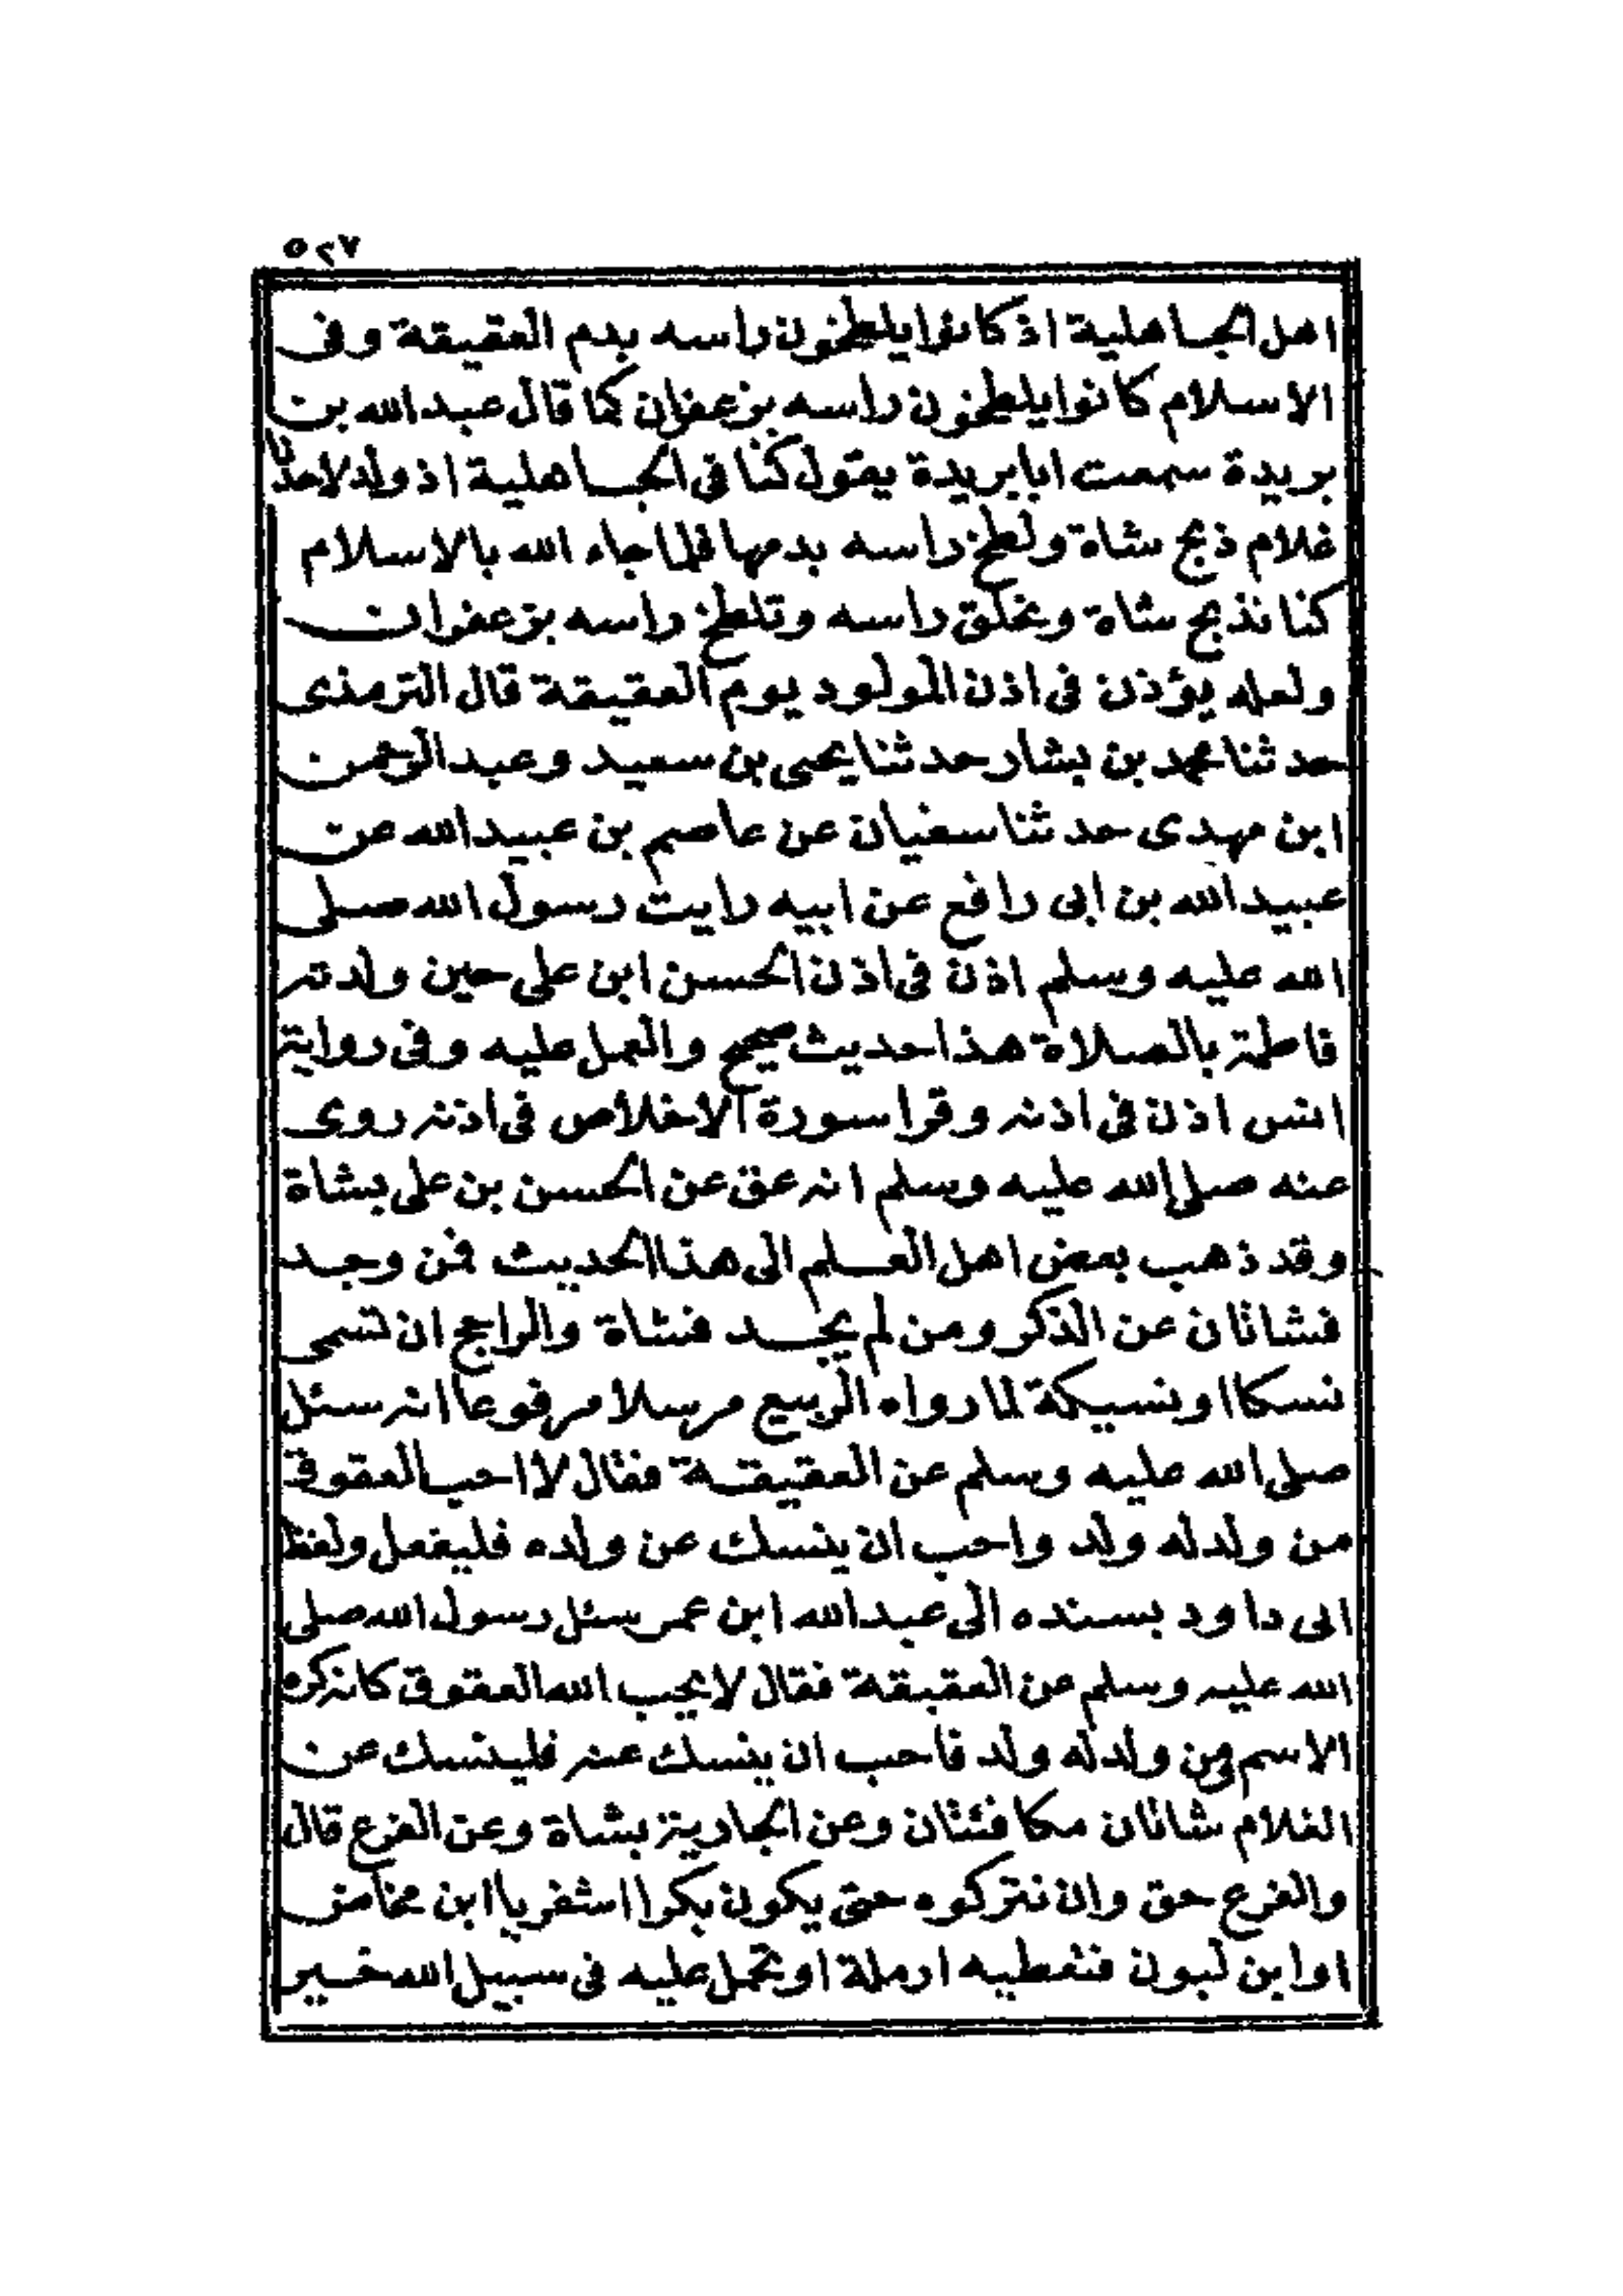 ٥٢٧
اهل الجاهلية اذ كانوا يلطخون راسه بدم العقيقة وفى
الاسلام كانوا يلطخون راسه بزعفران كما قال عبد الله بن
بريدة سمعت ابا بريدة يقول كنا فى الجاهلية اذ ولد لاحدنا
غلام ذبح شاة ولطخ راسه بدمها فلما جاء الله بالاسلام
كنا نذبح شاة ونحلق راسه وتلطخ راسه بزعفران
ولعله يؤذن فى اذن المولود يوم العقيقة قال الترمذى
حدثنا محمد بن بشار حدثنا يحيى بن سعيد وعبد الرحمن
ابن مهدى حدثنا سفيان عن عاصم بن عبيد الله عن
عبيد الله بن ابى رافع عن ابيه رايت رسول الله صلى
الله عليه وسلم اذن فى اذن الحسن ابن على حين ولدته
فاطمة بالصلاة هذا حديث صحيح والعمل عليه وفى رواية
انس اذن فى اذنه وقرا سورة الاخلاص فى اذنه روى
عنه صلى الله عليه وسلم انه عق عن الحسن بن على بشاة
وقد ذهب بعض اهل العلم الى هذا الحديث فمن وجد
فشاتان عن الذكر ومن لم يجد فشاة والراجح ان تسمى
نسكا او نسيكة لما رواه الربيع مرسلا مرفوعا انه سئل
صلى الله عليه وسلم عن العقيقة فقال لا احب العقوق
من ولد له ولد واحب ان ينسك عن ولده فليفعل ولفظ
ابى داود بسنده الى عبد الله ابن عمر سئل رسول الله صلى
الله عليه وسلم عن العقيقة فقال لا يحب الله العقوق كانه كره
الاسم فمن ولد له ولد فاحب ان ينسك عنه فلينسك عن
الغلام شاتان مكافئتان وعن الجارية بشاة وعن الفرع قال
والفرع حق وان نتركوه حتى يكون بكرا اشفريا ابن مخامن
او ابن لبون فنغطيه ارملة او تحمل عليه فى سبيل الله خير